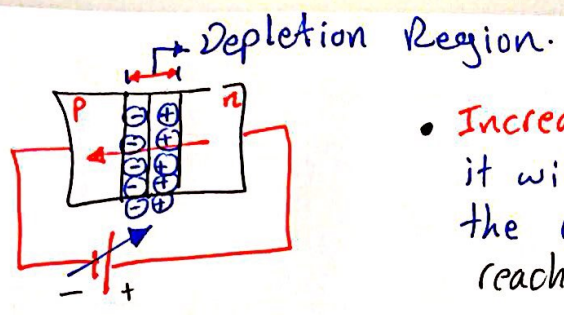 Depletion Region.
P n
- +
- +
- +
- +
- +
• Increa
it wi
the
reach
- +